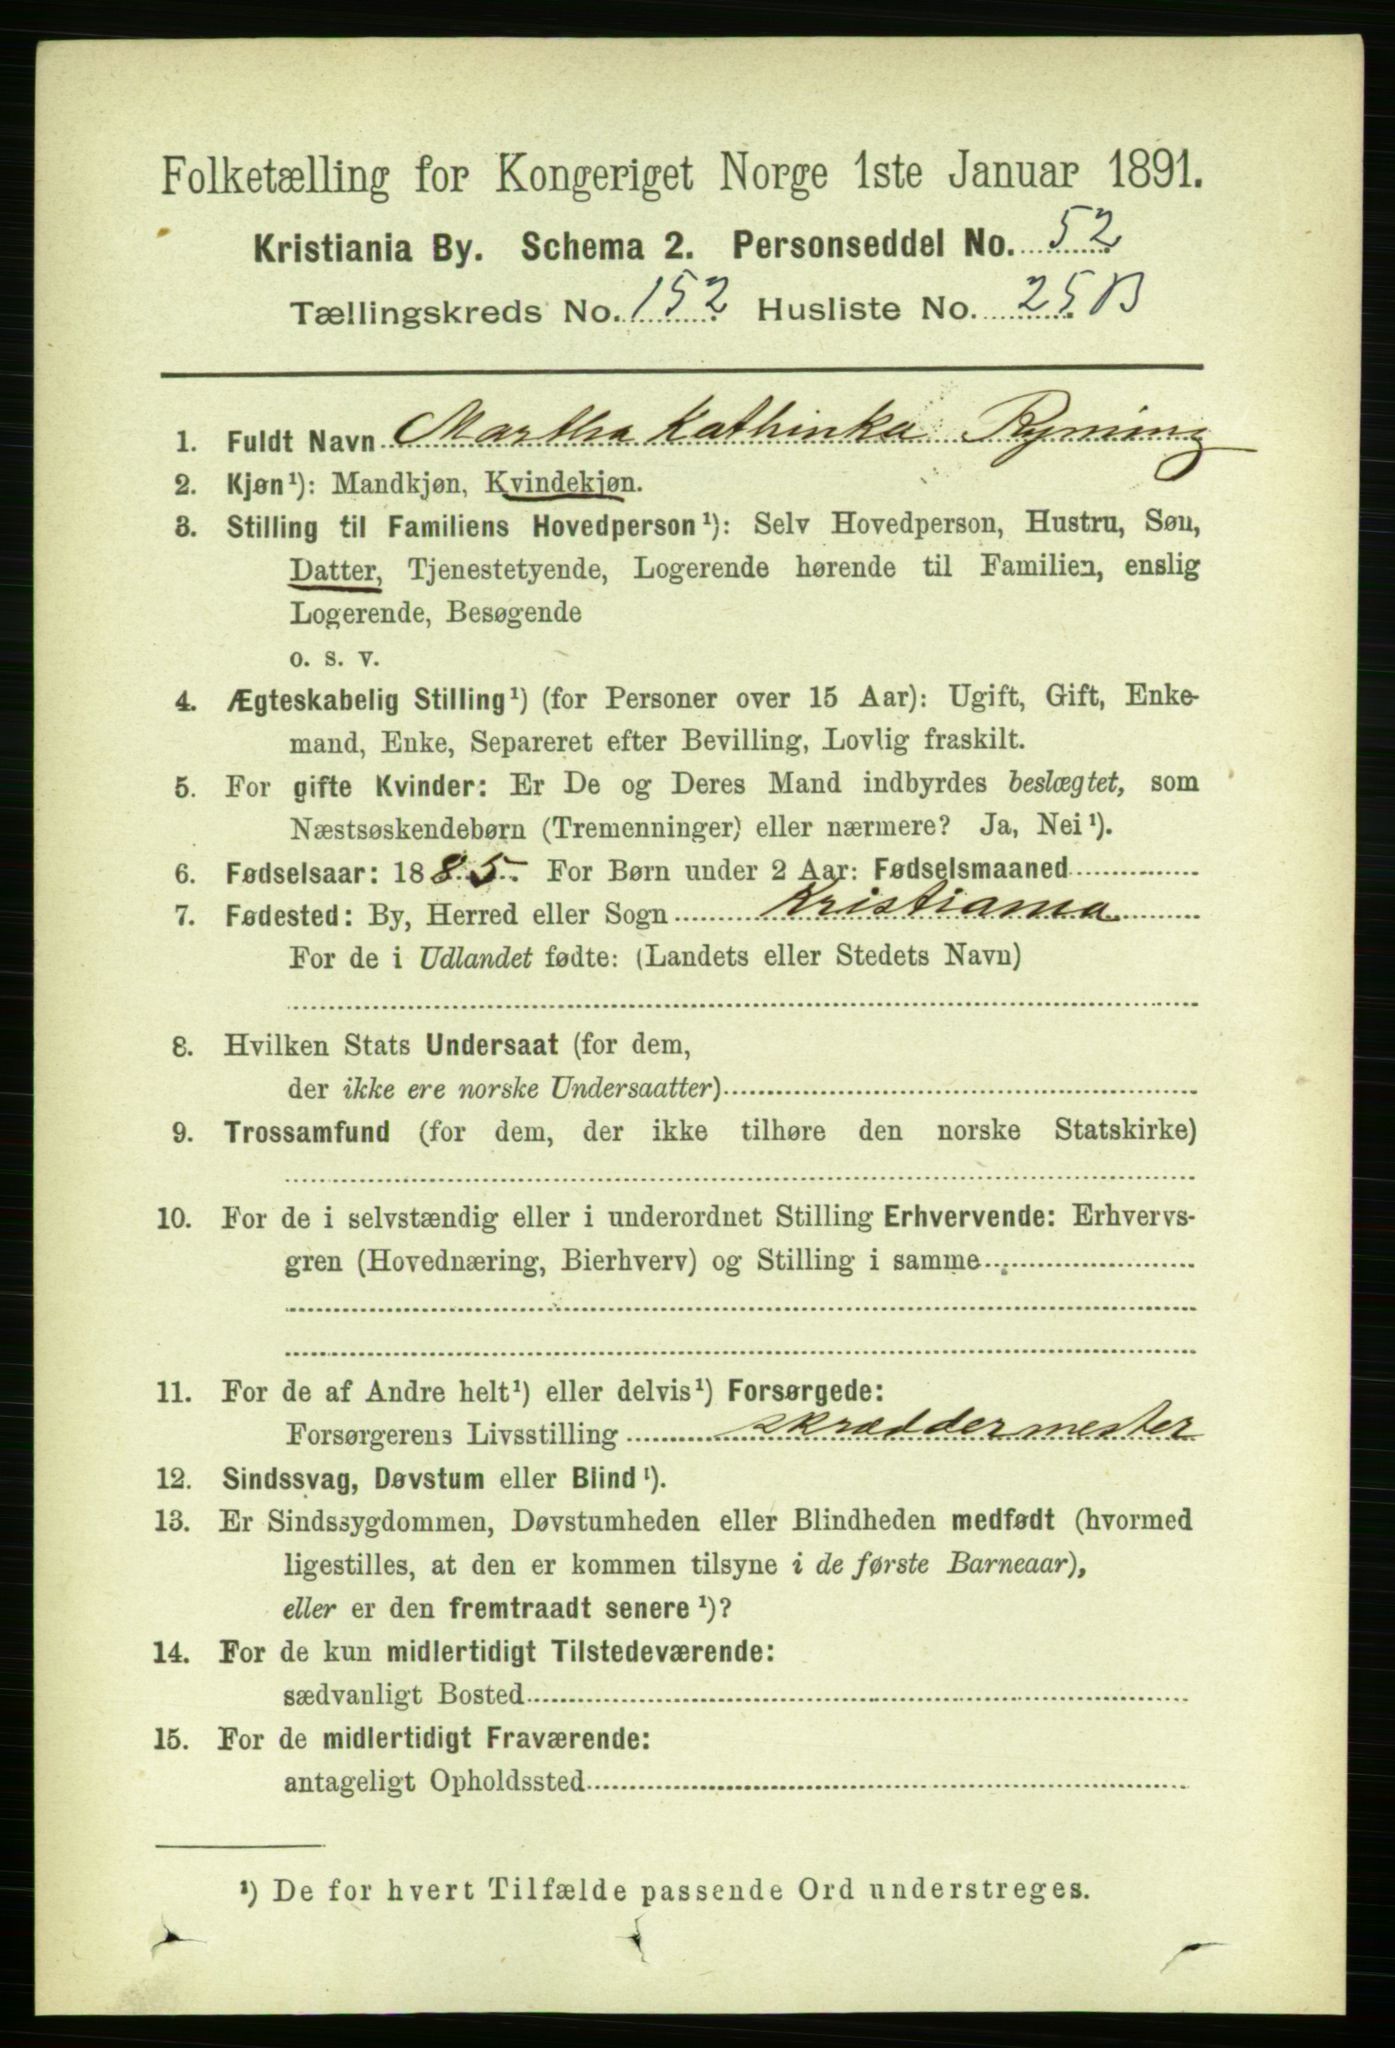 Folketælling for Kongeriget Norge 1ste Januar 1891.
Kristiania By. Schema 2. Personseddel No. 52
Tællingskreds No. 152 Husliste No. 25 B
1. Fuldt Navn Martha Kathinka Ryming
2. Kjøn¹): Mandkjøn, Kvindekjøn.
3. Stilling til Familiens Hovedperson¹): Selv Hovedperson, Hustru, Søn,
Datter, Tjenestetyende, Logerende hørende til Familien, enslig
Logerende, Besøgende
o. s. v.
4. Ægteskabelig Stilling¹) (for Personer over 15 Aar): Ugift, Gift, Enke-
mand, Enke, Separeret efter Bevilling, Lovlig fraskilt.
5. For gifte Kvinder: Er De og Deres Mand indbyrdes beslægtet, som
Næstsøskendebørn (Tremenninger) eller nærmere? Ja, Nei¹).
6. Fødselsaar: 1885. For Børn under 2 Aar: Fødselsmaaned
7. Fødested: By, Herred eller Sogn Kristiania
For de i Udlandet fødte: (Landets eller Stedets Navn)
8. Hvilken Stats Undersaat (for dem,
der ikke ere norske Undersaatter)
9. Trossamfund (for dem, der ikke tilhøre den norske Statskirke)
10. For de i selvstændig eller i underordnet Stilling Erhvervende: Erhvervs-
gren (Hovednæring, Bierhverv) og Stilling i samme
11. For de af Andre helt¹) eller delvis¹) Forsørgede:
Forsørgerens Livsstilling skræddermester
12. Sindssvag, Døvstum eller Blind¹).
13. Er Sindssygdommen, Døvstumheden eller Blindheden medfødt (hvormed
ligestilles, at den er kommen tilsyne i de første Barneaar),
eller er den fremtraadt senere¹)?
14. For de kun midlertidigt Tilstedeværende:
sædvanligt Bosted
15. For de midlertidigt Fraværende:
antageligt Opholdssted
¹) De for hvert Tilfælde passende Ord understreges.